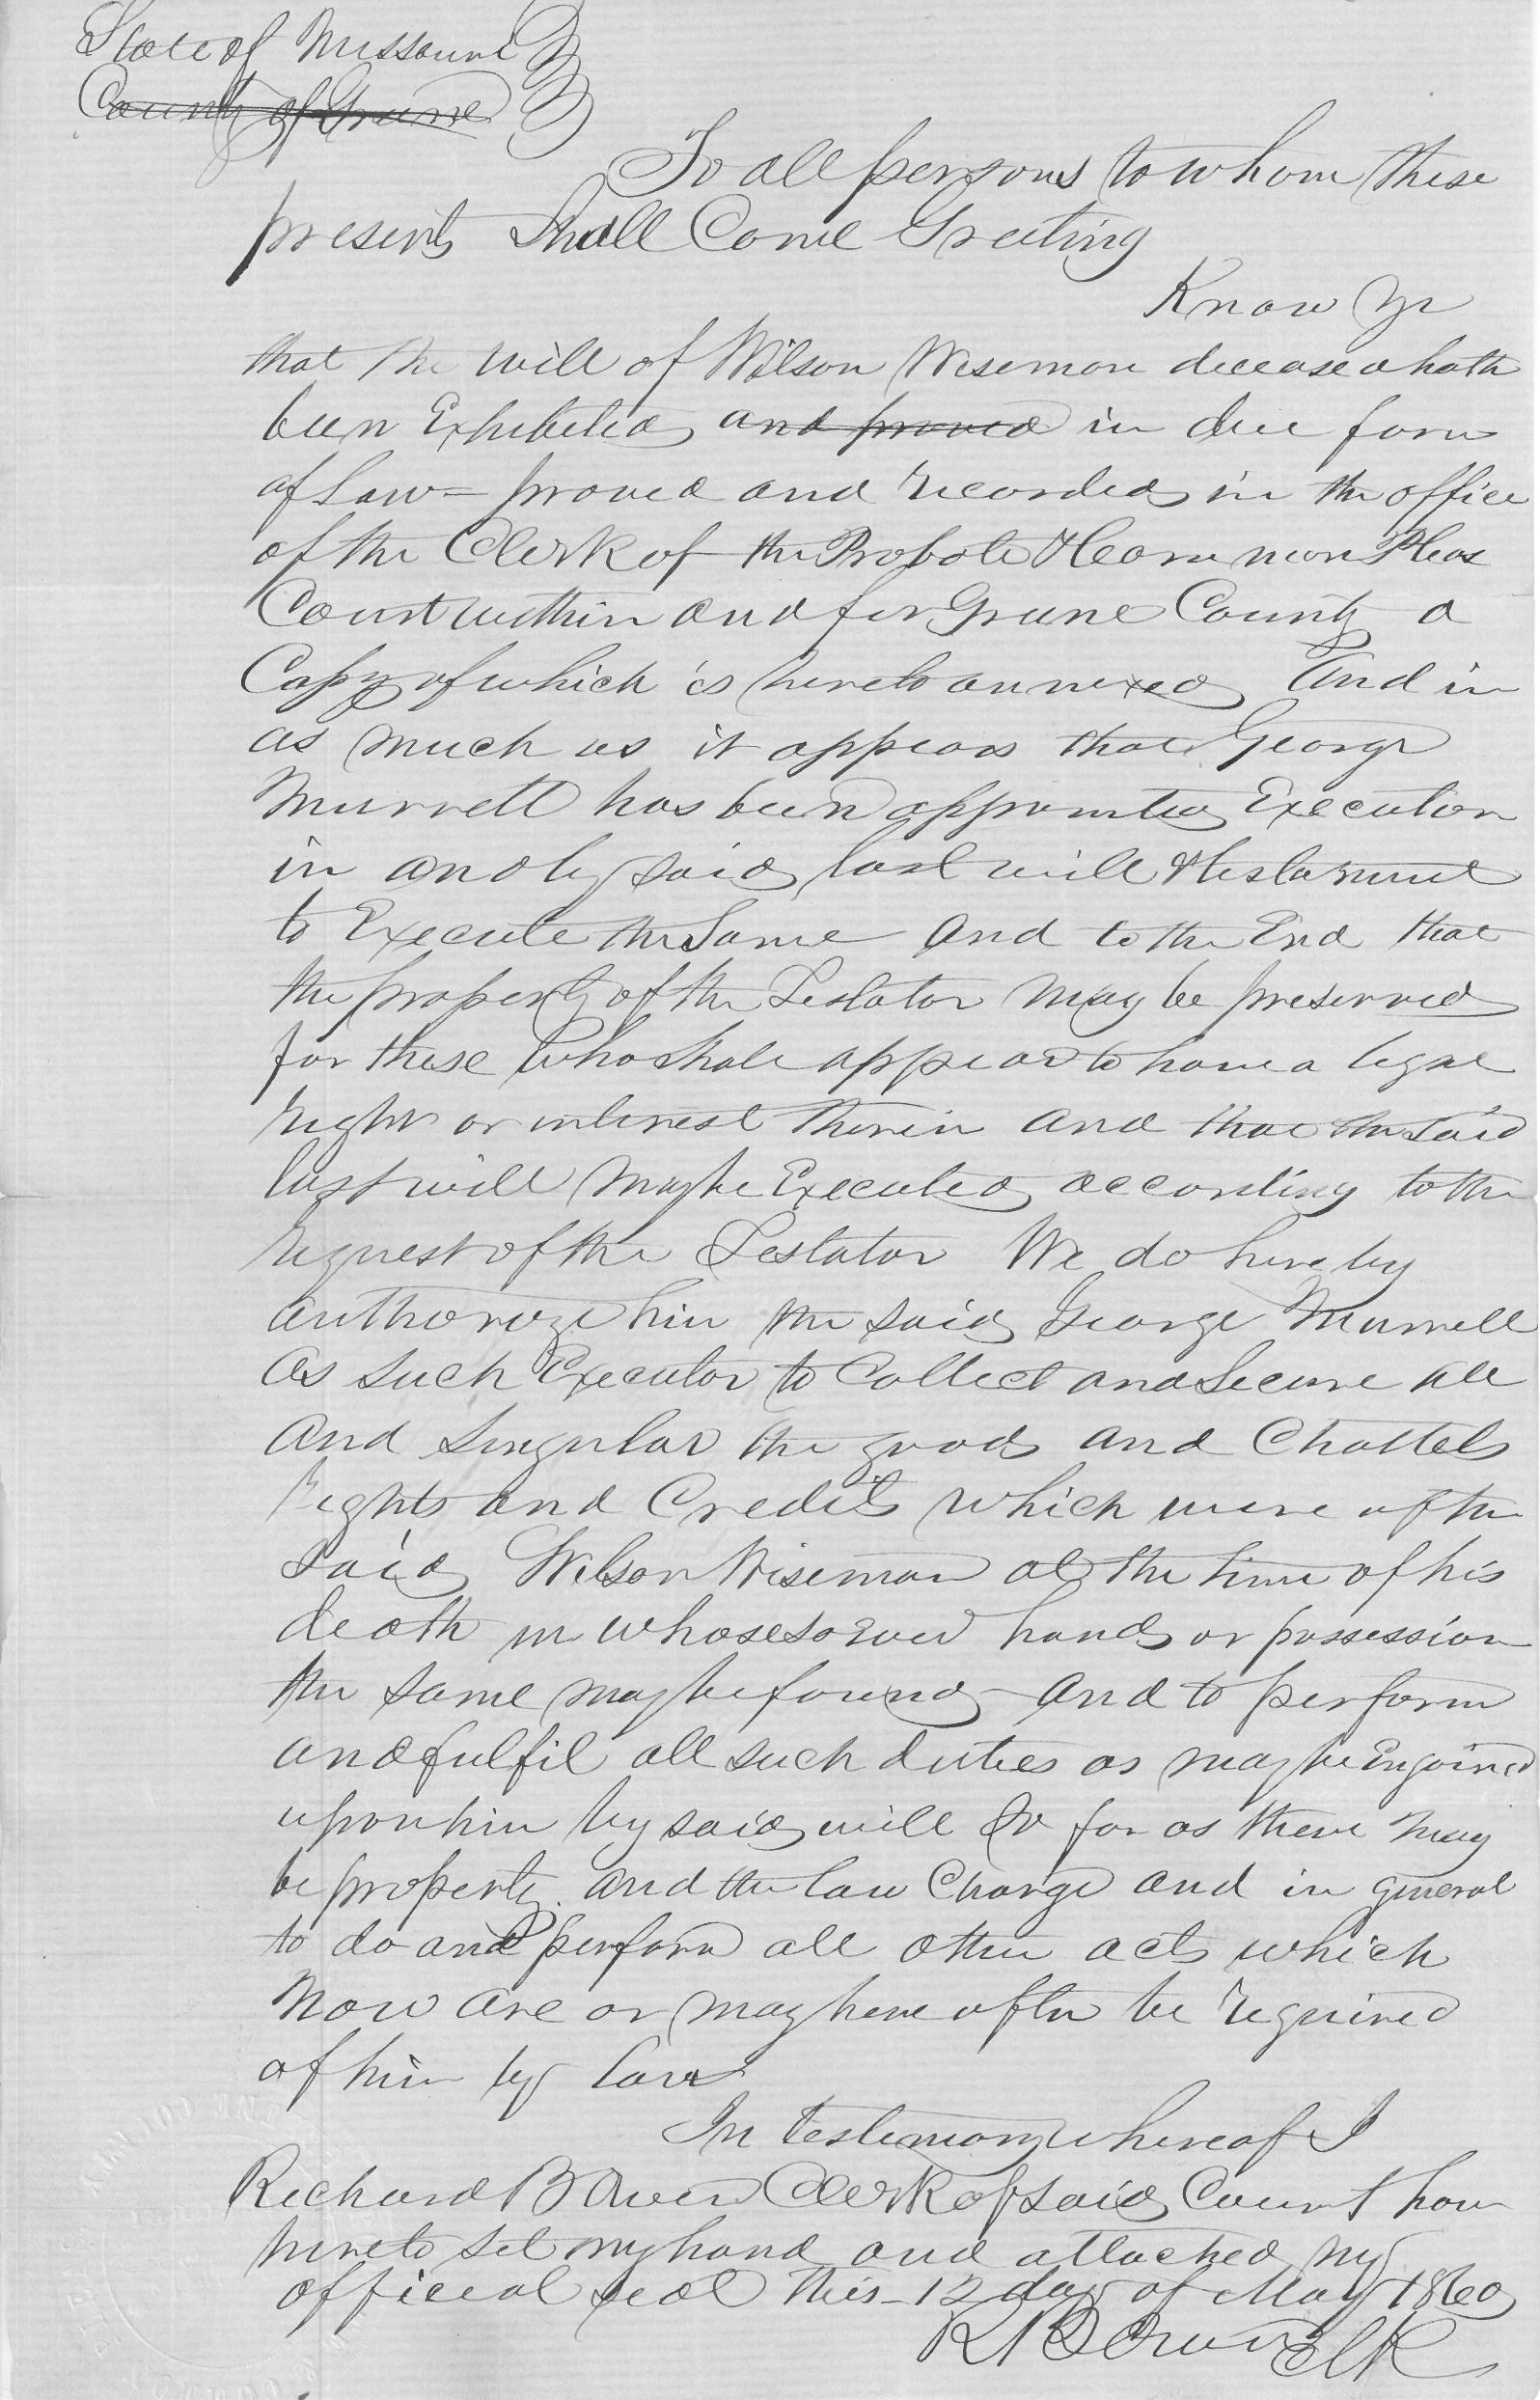 State of Missouri
County of Greene
To all persons to whom these
presents Shall Come Greeting
Know Ye
that the will of Wilson Wiseman deceased hath
been Exhibited and proved in due form
of Law = proved and recorded in the office
of the Clerk of the Probate & Common Pleas
Court within and for Greene County a
Copy of which is hereto annexed And in
as much as it appears that George
Murrell has been appointed Executor
in and by said last will & testament
to Execute the Same and to the End that
the property of the Testator may be preserved
for those who shall appear to have a legal
right or interest therein and that the said
last will may be Executed according to the
request of the Testator We do hereby
authorize him the said George Murrell
as such Executor to Collect and Secure all
and singular the goods and Chattels
rights and Credits which were of the
said Wilson Wiseman at the time of his
death in whosesoever hands or possession
the same may be found and to perform
and fulfil all such duties as may be Enjoined
upon him by said will So far as there may
be property and the law Charge and in general
to do and perform all other acts which
Now are or may hereafter be required
of him by law
In testimony whereof I
Richard B Owen Clerk of said Court have
hereto set my hand and attached my
official seal this 12 day of May 1860
R B Owen Clk